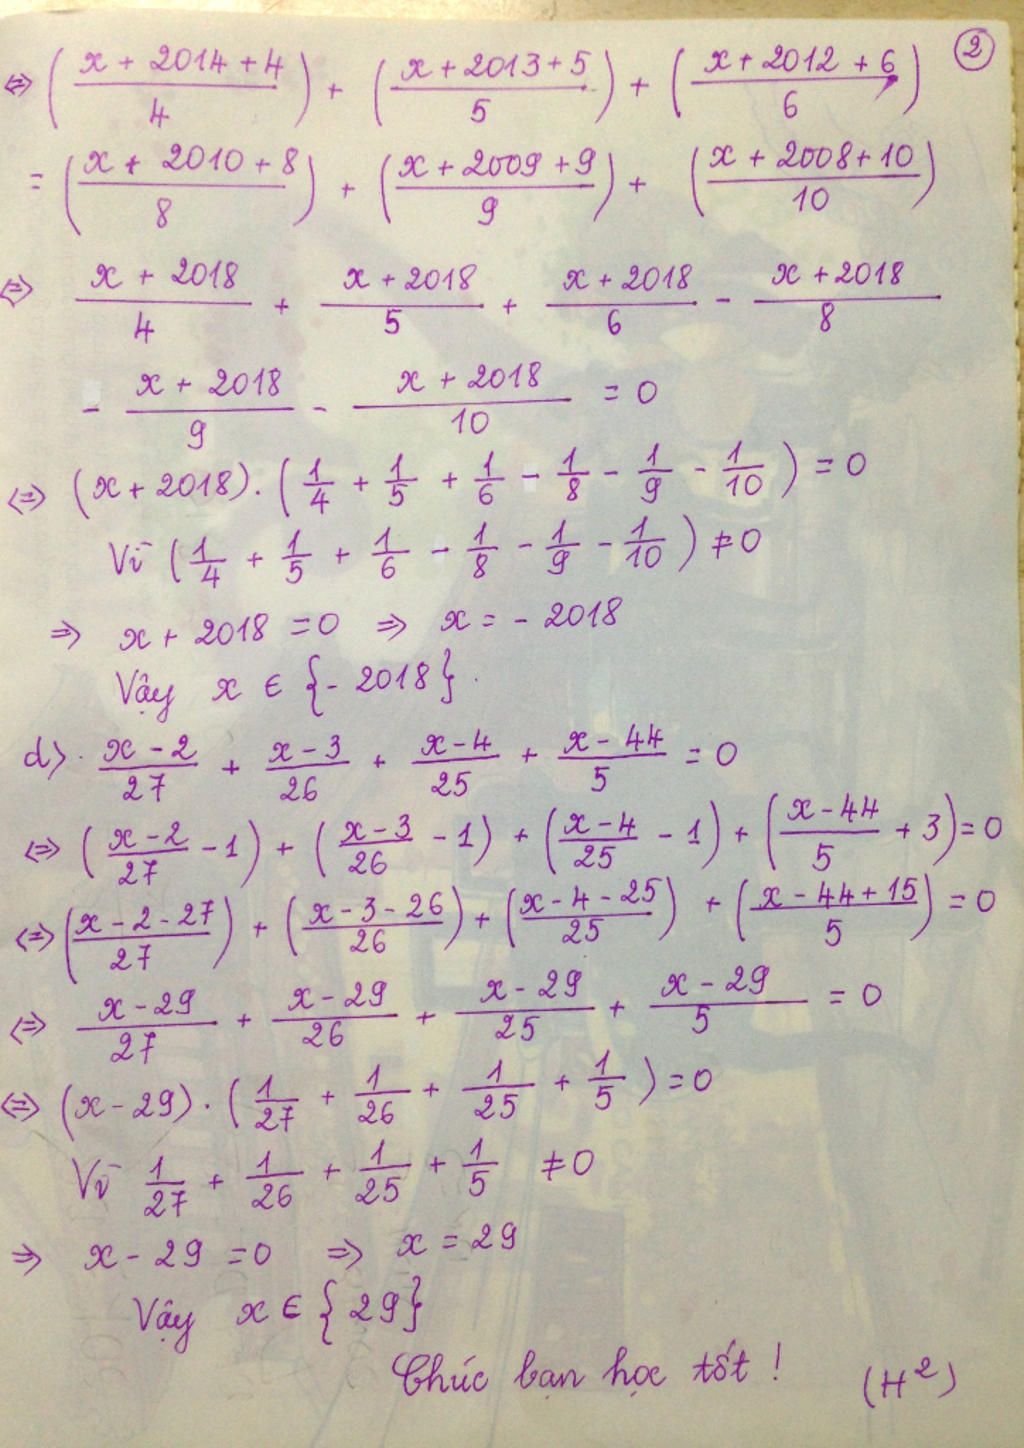 ②
⇔ ( (x + 2014 + 4)/4 ) + ( (x + 2013 + 5)/5 ) + ( (x + 2012 + 6)/6 )
= ( (x + 2010 + 8)/8 ) + ( (x + 2009 + 9)/9 ) + ( (x + 2008 + 10)/10 )
⇔ (x + 2018)/4 + (x + 2018)/5 + (x + 2018)/6 - (x + 2018)/8
- (x + 2018)/9 - (x + 2018)/10 = 0
⇔ (x + 2018) . ( 1/4 + 1/5 + 1/6 - 1/8 - 1/9 - 1/10 ) = 0
Vì ( 1/4 + 1/5 + 1/6 - 1/8 - 1/9 - 1/10 ) ≠ 0
⇒ x + 2018 = 0 ⇒ x = - 2018
Vậy x ∈ {- 2018}.
d) . (x - 2)/27 + (x - 3)/26 + (x - 4)/25 + (x - 44)/5 = 0
⇔ ( (x - 2)/27 - 1 ) + ( (x - 3)/26 - 1 ) + ( (x - 4)/25 - 1 ) + ( (x - 44)/5 + 3 ) = 0
⇔ ( (x - 2 - 27)/27 ) + ( (x - 3 - 26)/26 ) + ( (x - 4 - 25)/25 ) + ( (x - 44 + 15)/5 ) = 0
⇔ (x - 29)/27 + (x - 29)/26 + (x - 29)/25 + (x - 29)/5 = 0
⇔ (x - 29) . ( 1/27 + 1/26 + 1/25 + 1/5 ) = 0
Vì 1/27 + 1/26 + 1/25 + 1/5 ≠ 0
⇒ x - 29 = 0 ⇒ x = 29
Vậy x ∈ { 29}
Chúc bạn học tốt ! (H²)